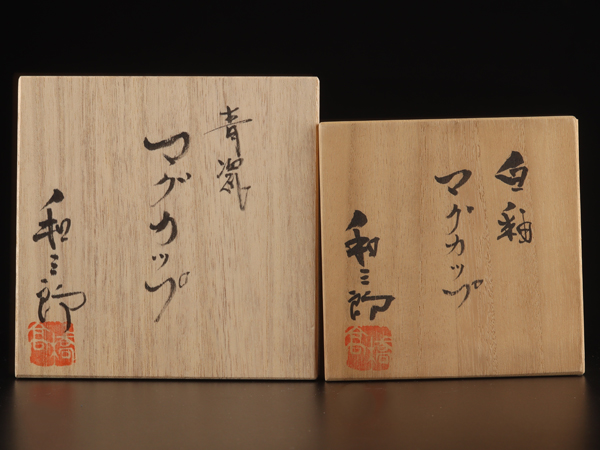 青瓷
マグカップ
和三郎
髙橋
白釉
マグカップ
和三郎
髙橋